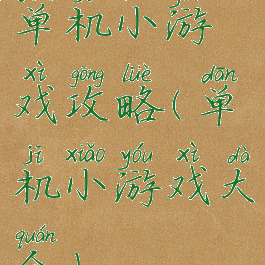 单机小游
xì gōng lüè dān
戏攻略(单
jī xiǎo yóu xì dà
机小游戏大
quán
全)